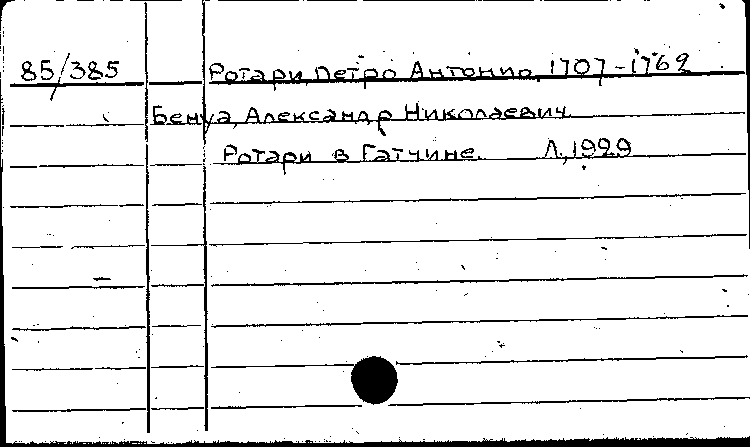 85/385 Ротари, Петро Антонио, 1707-1762
Бенуа, Александр Николаевич
Ротари в Гатчине. Л., 1929